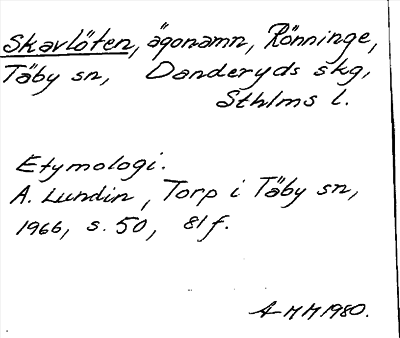 Skavlöten, ägonamn, Rönninge,
Täby sn, Danderyds skg,
Sthlms l.
Etymologi.
A. Lundin, Torp i Täby sn,
1966, s. 50, 81f.
AMM 1980.